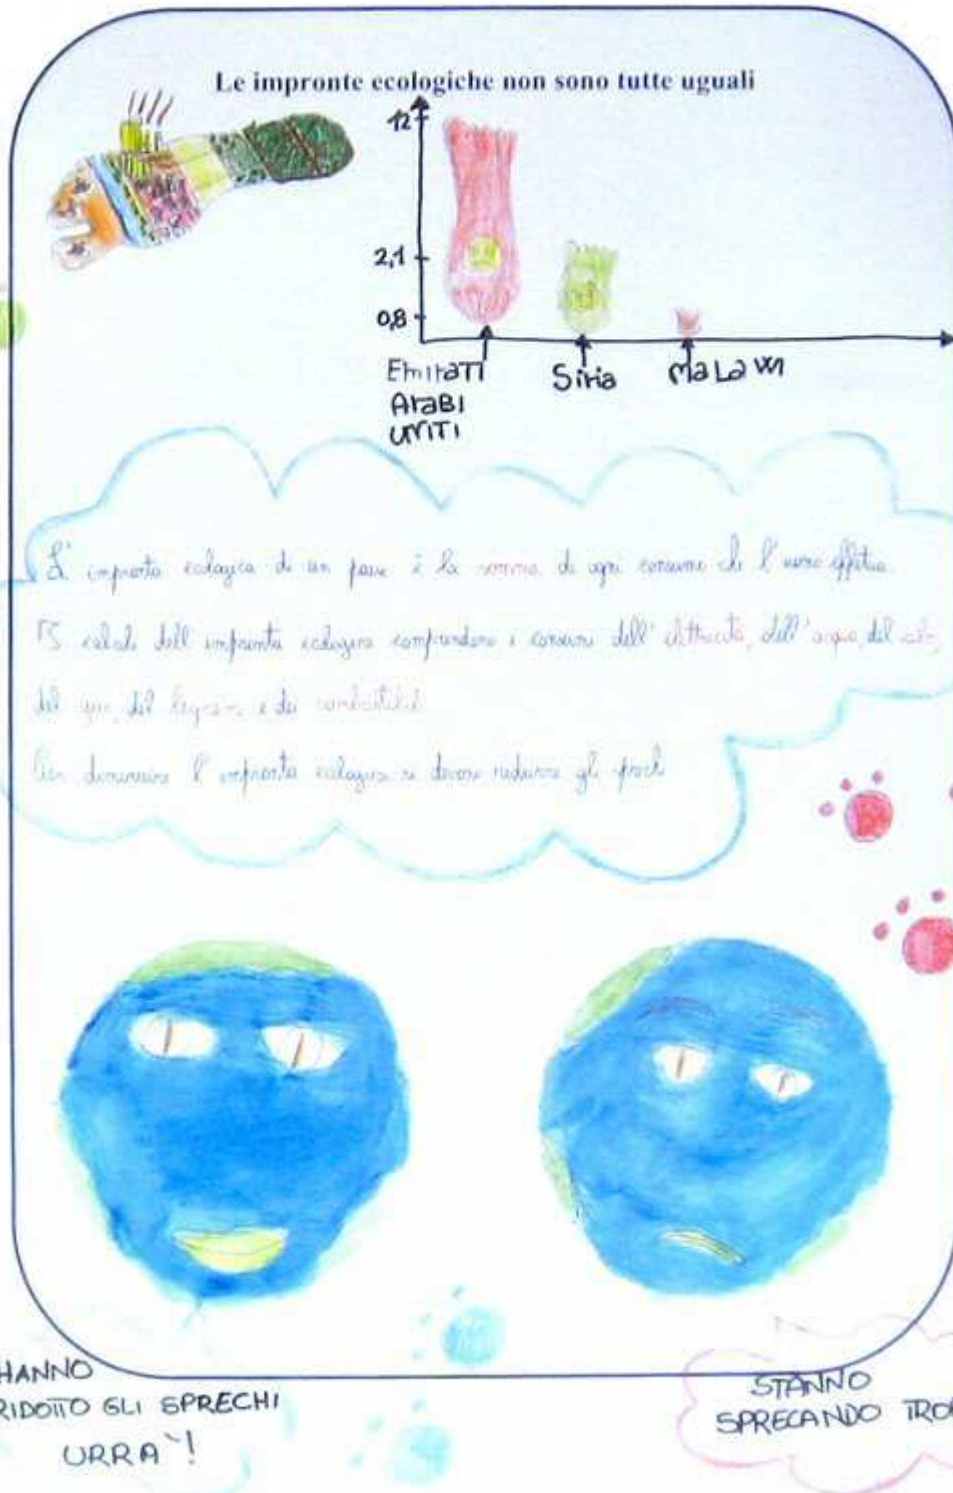 Le impronte ecologiche non sono tutte uguali
12
2,1
0,8
Emirati
Arabi
Uniti
Siria
Malawi
L'impronta ecologica di un paese è la somma di ogni consumo che l'uomo effettua.
I calcoli dell'impronta ecologica comprendono i consumi dell'elettricità, dell'acqua, del cibo,
del gas, del legname e dei combustibili
Per diminuire l'impronta ecologica si devono ridurre gli sprechi
HANNO
RIDOTTO GLI SPRECHI
URRA'!
STANNO
SPRECANDO